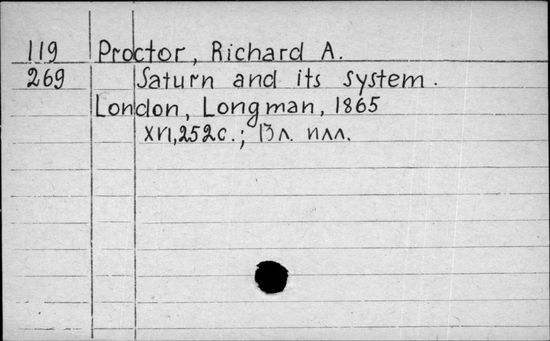 119 Proctor, Richard A.
269 Saturn and its system.
London, Longman, 1865
XVI, 252 с.; 13 л. илл.